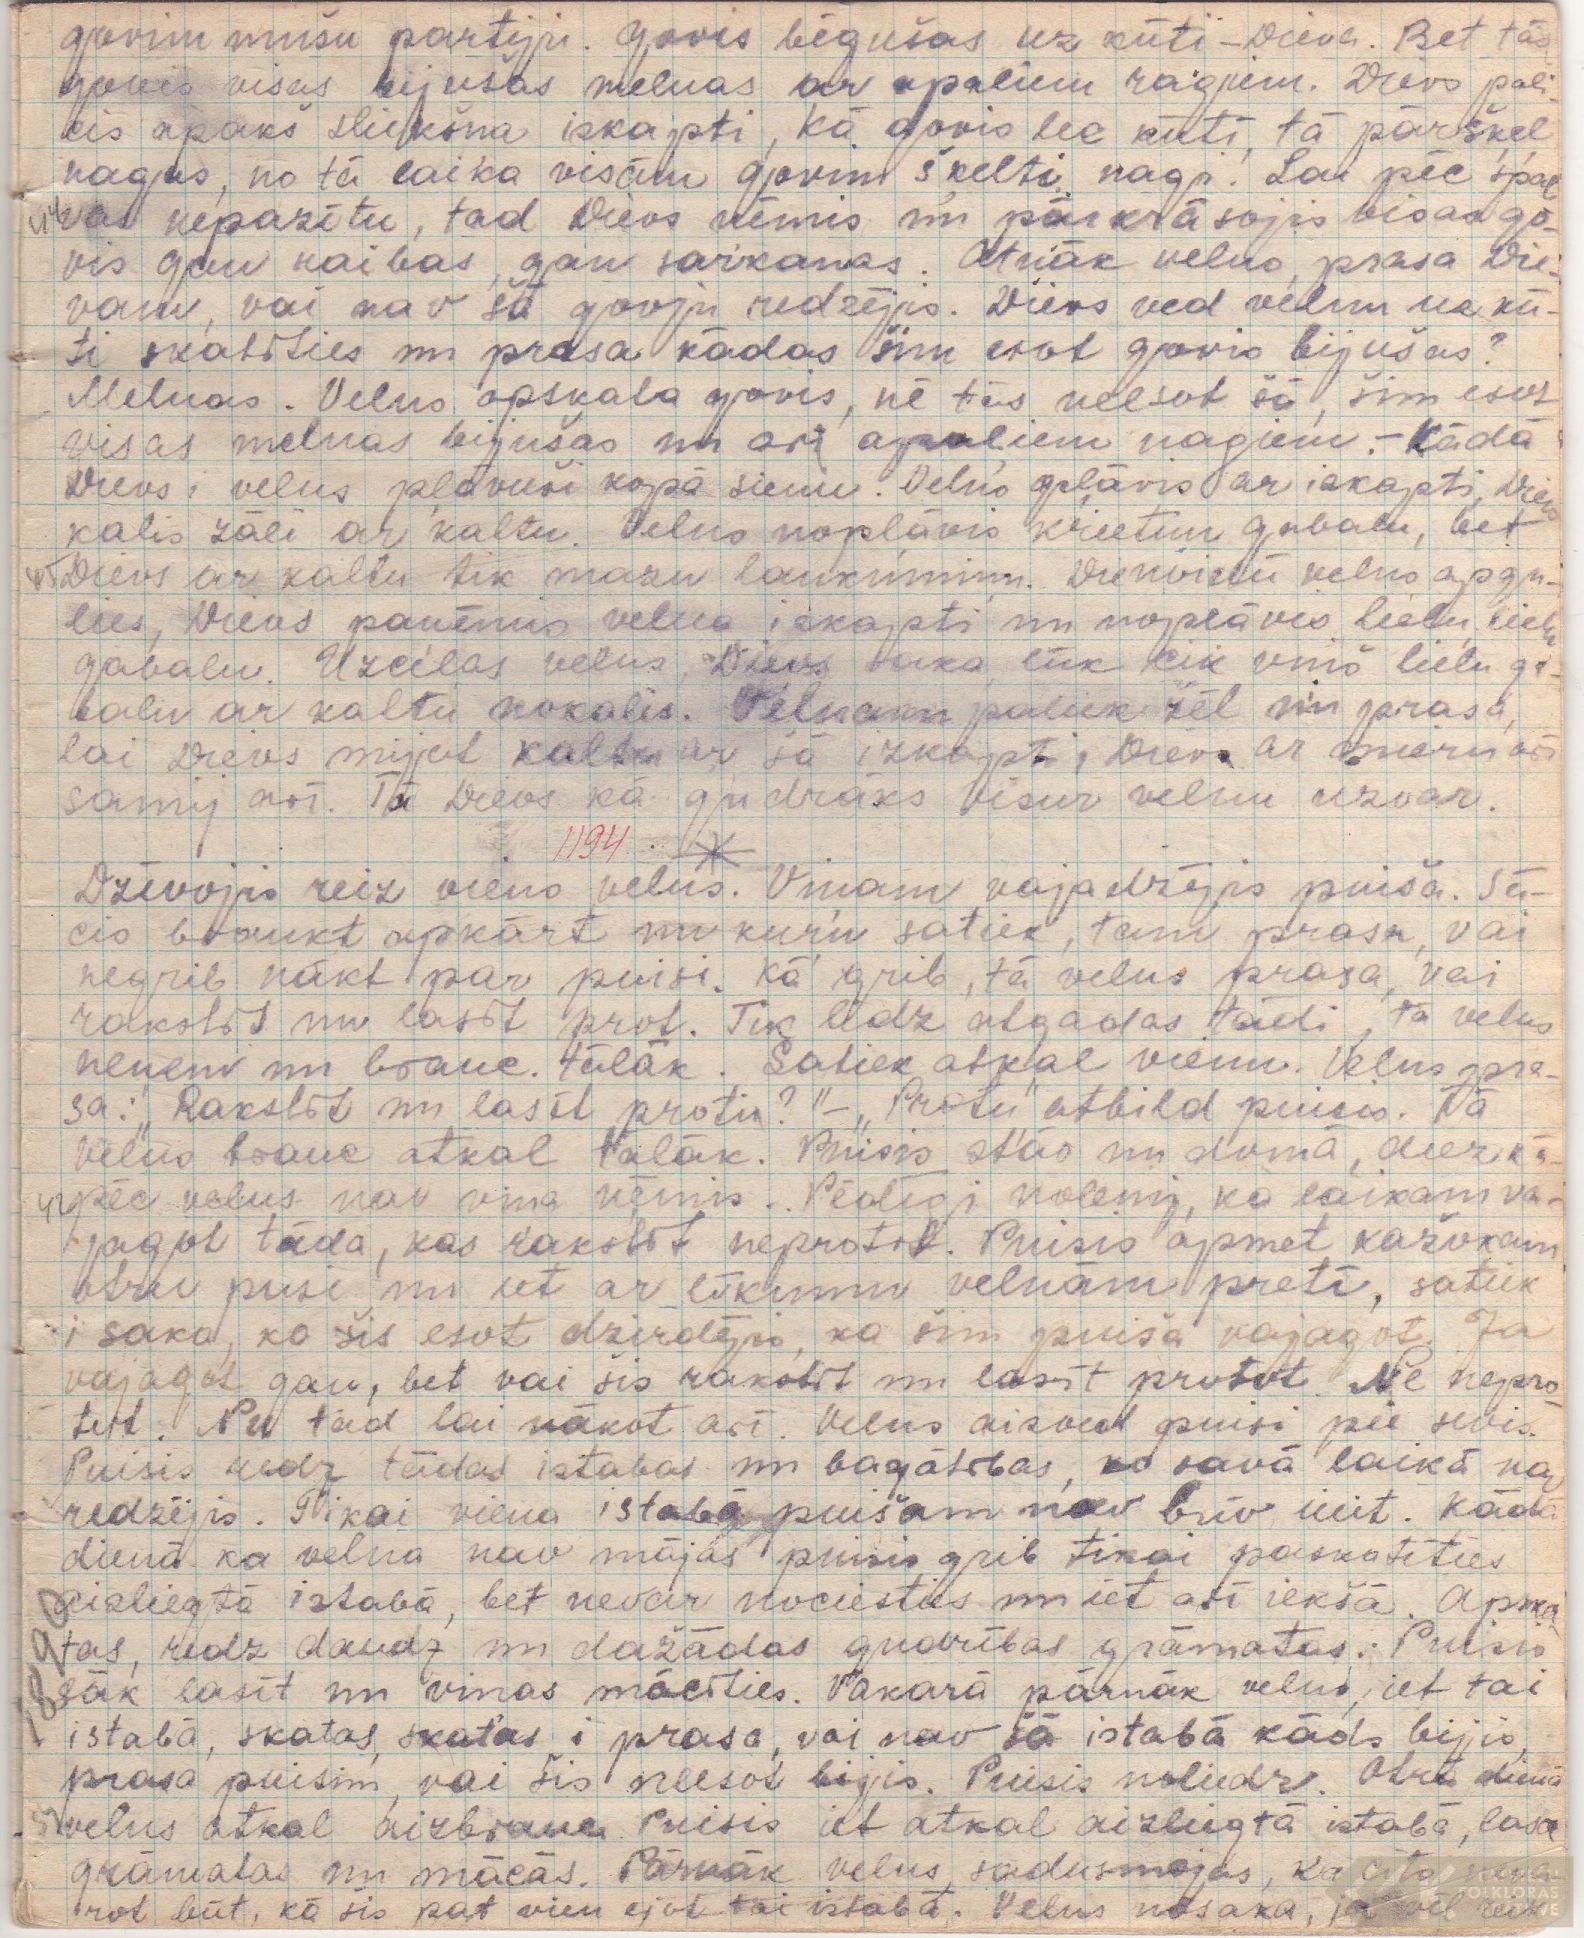 govim mušu partiju. Govis bēgušas uz kūti – Dieva. Bet tās
govis visas bijušas melnas ar apaliem ragiem. Dievs pali-
cis apakš sliekšna izkapti, kā govis lec kūtī, tā pāršķel
nagus, no tā laika visām govim šķelti nagi. Lai pēc spal
vas nepazītu, tad Dievs ņēmis un pārkrāsojis visas go-
vis gan raibas, gan sarkanas. Atnāk velns, prasa Die-
vam, vai nav šā govju redzējis. Dievs ved velnu uz kū-
ti skatīties un prasa kādas šim esot govis bijušas?
Melnas. Velns apskata govis, nē tās neesot šā, šim esot
visas melnas bijušas un arī apaliem nagiem. – Kādā
Dievs i velns pļāvuši kopā sienu. Velns pļāvis ar izkapti, Dievs
kalis zāli ar kaltu. Velns nopļāvis krietnu gabalu, bet
Dievs ar kaltu tik mazu laukumiņu. Dienvidū velns apgu-
lies, Dievs paņēmis velna izkapti un nopļāvis lielu, lielu
gabalu. Uzceļas velns, Dievs saka lūk cik viņš lielu ga-
balu ar kaltu nokalis. Velnam paliek žēl un prasa,
lai Dievs mijot kaltu ar šā izkapti, Dievs ar mieru arī
samij arī. Tā Dievs kā gudrāks visur velnu uzvar.
1194
Dzīvojis reiz viens velns. Viņam vajadzējis puiša. Sā-
cis braukt apkārt un kuŗu satiek, tam prasa, vai
negrib nākt par puisi. Kā grib, tā velns prasa, vai
rakstīt un lasīt prot. Tik līdz atgadas tādi, tā velns
neņem un brauc tālāk. Satiek atkal vienu. Velns pra-
sa: „Rakstīt un lasīt protu?" – „Protu" atbild puisis. Tā
velns brauc atkal tālāk. Puisis stāv un domā, diez kā-
pēc velns nav viņa ņēmis. Pēdīgi nolemj, ka laikam va-
jagot tāda, kas rakstīt neprotot. Puisis apmet kažokam
otru pusi un iet ar līkumu velnam pretī, satiek
i saka, ko šis esot dzirdējis, ka šim puiša vajagot. Ja
vajagot gan, bet vai šis rakstīt un lasīt protot. Nē nepro-
tot. Nu tad lai nākot arī. Velns aizved puisi pie sevis.
Puisis redz tādas istabas un bagātības, ko savā laikā nav
redzējis. Tikai viena istabā puišam nav brīv iiet. Kādā
dienā ka velna nav mājās puisis grib tikai paskatīties
aizliegtā istabā, bet nevar nociesties un iet arī iekšā. Apska
tas, redz daudz un dažādas gudrības grāmatas. Puisis
sāk lasīt un viņas mācīties. Vakarā pārnāk velns, iet tai
istabā, skatas, skatas i prasa, vai nav šā istabā kāds bijis,
prasa puisim, vai šis neesot bijis. Puisis noliedz. Otrā dienā
velns atkal aizbrauc. Puisis iet atkal aizliegtā istabā, lasa
grāmatas un mācās. Pārnāk velns, sadusmojas, ka cita neva-
rot būt, kā šis pat vien ejot tai istabā. Velns nosaka, ja vēl